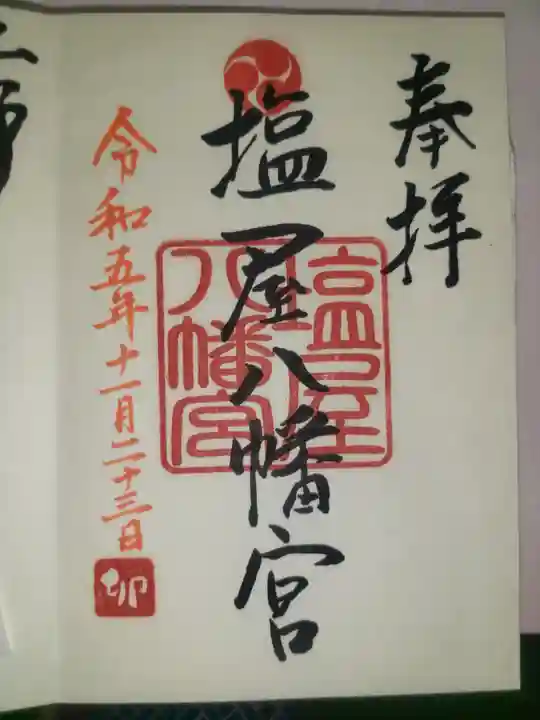 奉拝
塩屋八幡宮
塩屋
八幡宮
令和五年十一月二十三日
卯